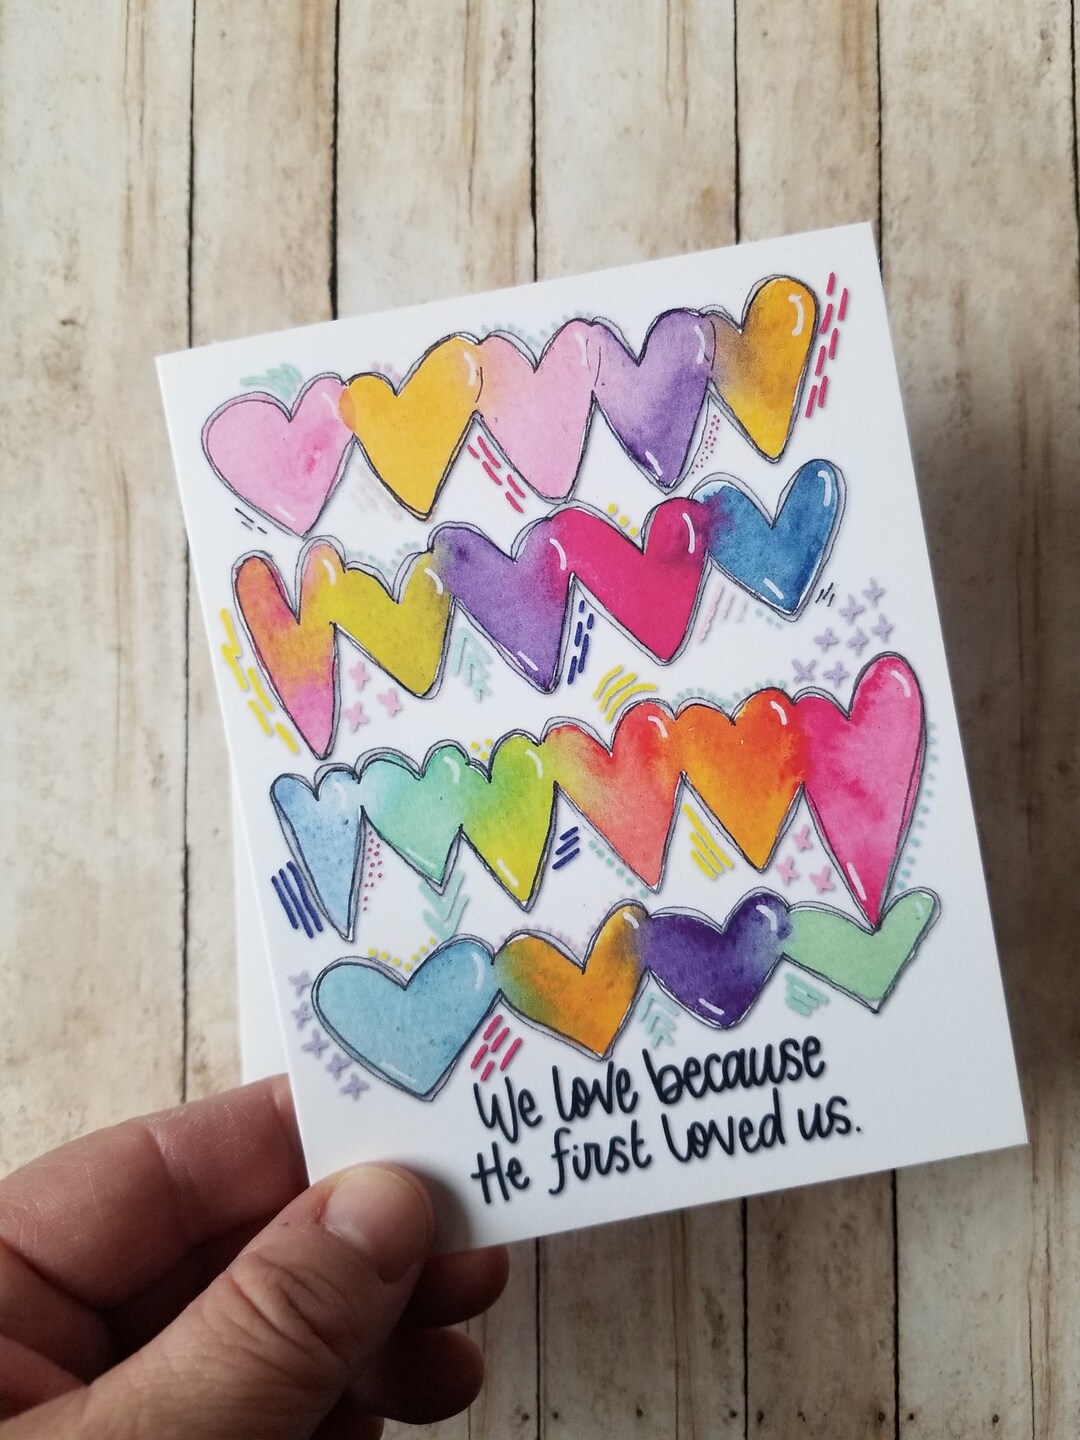 We love because
He first loved us.